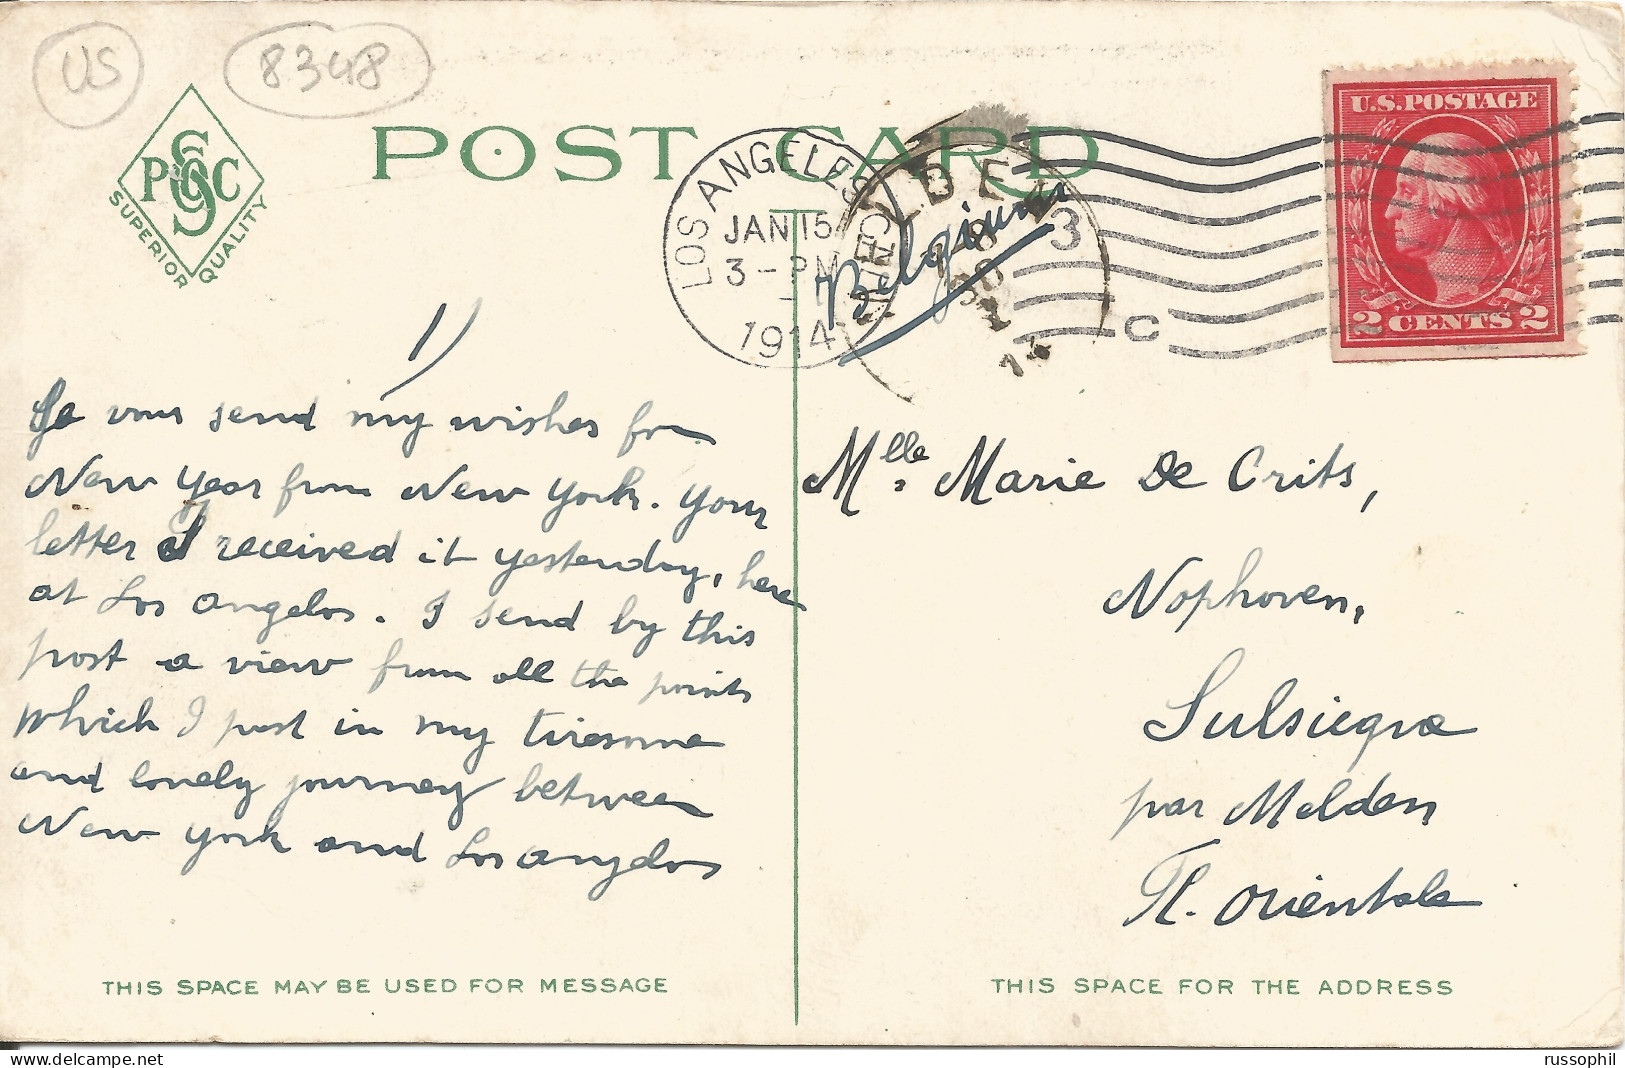 US
8348
PSGC
SUPERIOR QUALITY
POST CARD
LOS ANGELES
JAN 15
3-PM
1914
MELDEN
14
3
C
Belgium
U.S.POSTAGE
2 CENTS 2
1)
Je vous send my wishes for
New Year from New York. Your
letter I received it yesterday, here
at Los Angelos. I send by this
post a view from all the points
which I past in my tiresome
and lonely journey between
New York and Los Angelos
Mlle Marie De Crits,
Nophoven,
Sulsicque
par Melden
Fl. Orientale
THIS SPACE MAY BE USED FOR MESSAGE
THIS SPACE FOR THE ADDRESS
russophil
www.delcampe.net